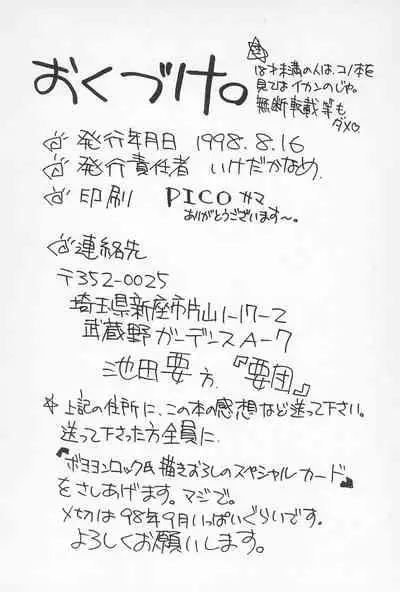 おくづけ。
18才未満の人は、コノ本を
見てはイカンのじゃ。
無断転載等も、
ダメ♡
発行年月日 1998.8.16
発行責任者 いけだかなめ.
印刷 PICO サマ
ありがとうございます〜。
連絡先
〒352-0025
埼玉県新座市片山1-17-2
武蔵野ガーデンスA-7
池田要方.『要団』
上記の住所に、この本の感想など送って下さい。
送って下さった方全員に、
『ボヨヨンロック氏描きおろしのスペシャルカード』
をさしあげます。マジで。
〆切は98年9月いっぱいぐらいです。
よろしくお願いします。